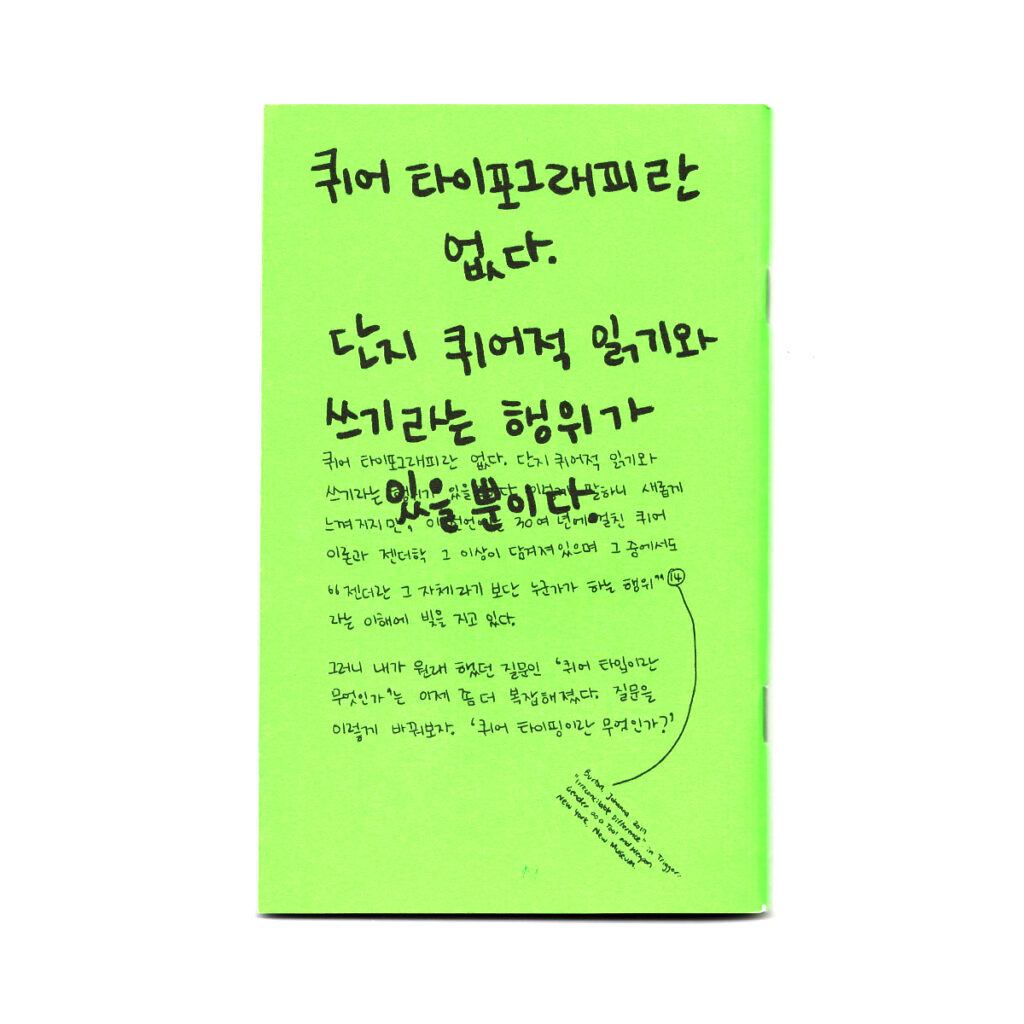 퀴어 타이포그래피란
없다.
단지 퀴어적 읽기와
쓰기라는 행위가
있을 뿐이다.
퀴어 타이포그래피란 없다. 단지 퀴어적 읽기와
쓰기라는 행위가 있을 말하니 새롭게
느껴지지만, 30여 년에 걸친 퀴어
이론과 젠더학 그 이상이 담겨져있으며 그 중에서도
“젠더란 그 자체라기 보단 누군가가 하는 행위” 14
라는 이해에 빚을 지고 있다.
그러니 내가 원래 했던 질문인 ‘퀴어 타입이란
무엇인가’는 이제 좀 더 복잡해졌다. 질문을
이렇게 바꿔보자. ‘퀴어 타이핑이란 무엇인가?’
Burton, Johanna 2017
"Irreconcilable Difference" in Trigger:
Gender as a Tool and Weapon
New York, New Museum.